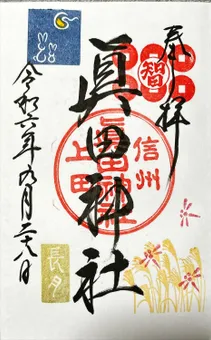 奉拝
智
眞田神社
信州
上田
眞田神社
令和六年九月二十八日
長月